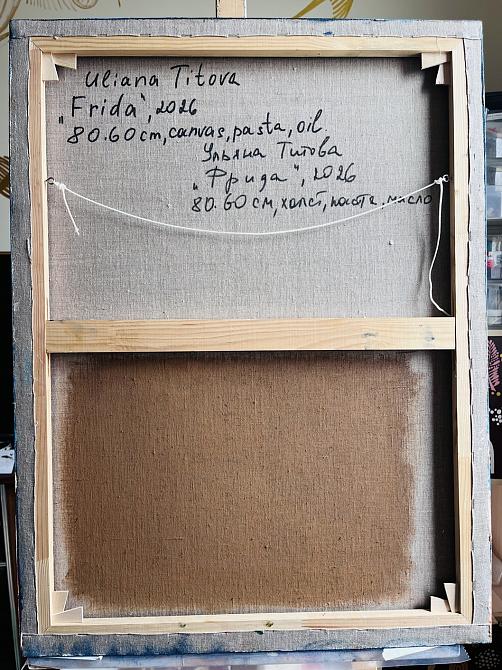 Uliana Titova
„Frida", 2026
80.60 cm, canvas, pasta, oil
Ульяна Титова
„Фрида", 2026
80.60 см, холст, паста, масло